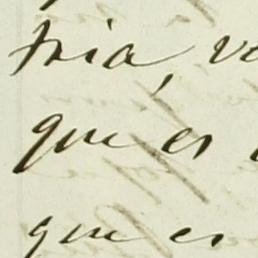 tria, ve
que es
que es